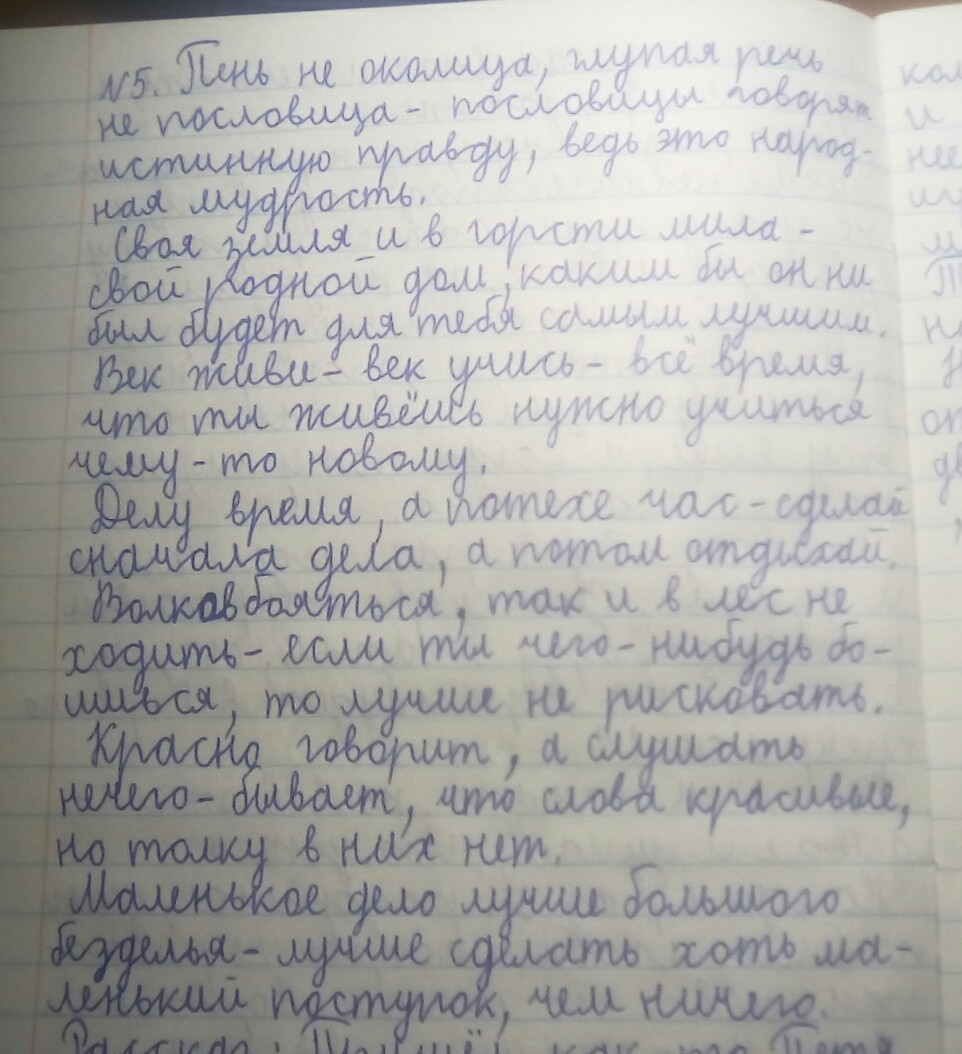 №5. Пень не околица, глупая речь
не пословица - пословицы говорят
истинную правду, ведь это народ-
ная мудрость.
Своя земля и в горсти мила -
свой родной дом, каким бы он ни
был будет для тебя самым лучшим.
Век живи - век учись - всё время,
что ты живёшь нужно учиться
чему-то новому.
Делу время, а потехе час - сделай
сначала дела, а потом отдыхай.
Волков бояться, так и в лес не
ходить - если ты чего-нибудь бо-
ишься, то лучше не рисковать.
Красно говорит, а слушать
нечего - бывает, что слова красивые,
но толку в них нет.
Маленькое дело лучше большого
безделья - лучше сделать хоть ма-
ленький поступок, чем ничего.
Рассказ: Пришёл как-то Петя
кол
и
нее